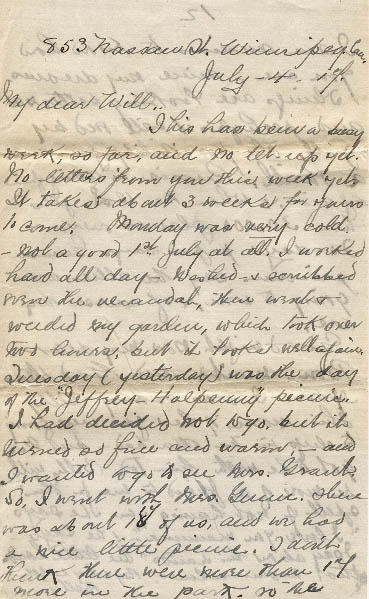 853 Nassau St. Winnipeg Can.
July - 4. 17.
My dear Will.
This has been a busy
week, so far, and no let-up yet.
No letters from you this week yet.
It takes about 3 weeks for yours
to come. Monday was very cold.
- not a good 1st July at all. I worked
hard all day - washed & scrubbed
even the verandah, then went &
weeded my garden, which took over
two hours, but it looks well again.
Tuesday (yesterday) was the day
of the "Jeffrey-Halpenny" picnic.
I had decided not to go, but it
turned so fine and warm, and
I wanted to go to see Mrs. Grant.
So, I went with Mrs. Gunn. There
was about 18 of us, and we had
a nice little picnic. I don't
think there were more than
more in the park. so the